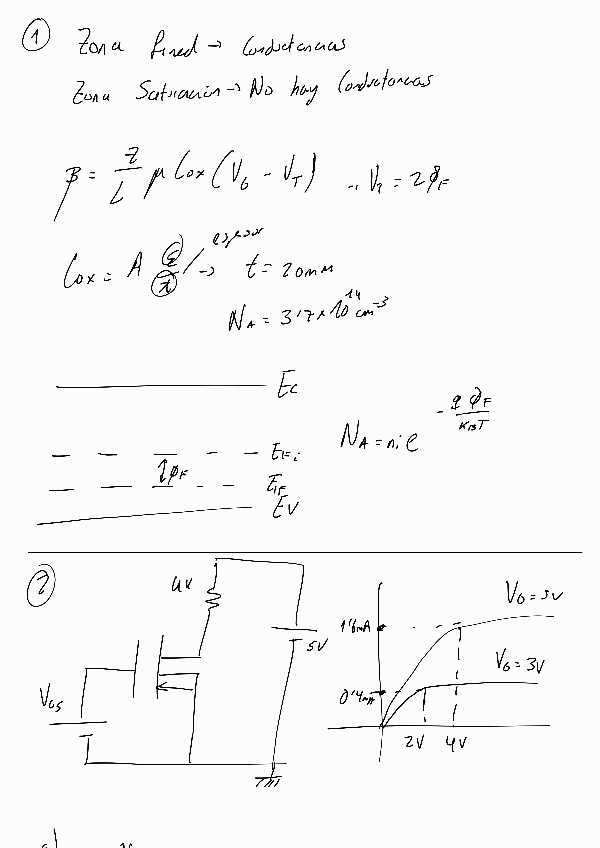 ① Zona lineal → Conductancias
Zona Saturación → No hay Conductancias
β = Z/L μ Cox (VG - VT) .. VT = 2ϕF
Cox = A ε/t → espesor t = 20nm
NA = 3'7 x 10^14 cm^-3
Ec
EFi
ϕF
EF
EV
NA = ni e^(- q ϕF / KBT)
②
4K
5V
VGS
1'6mA
0'4mA
VG = 5V
VG = 3V
2V 4V